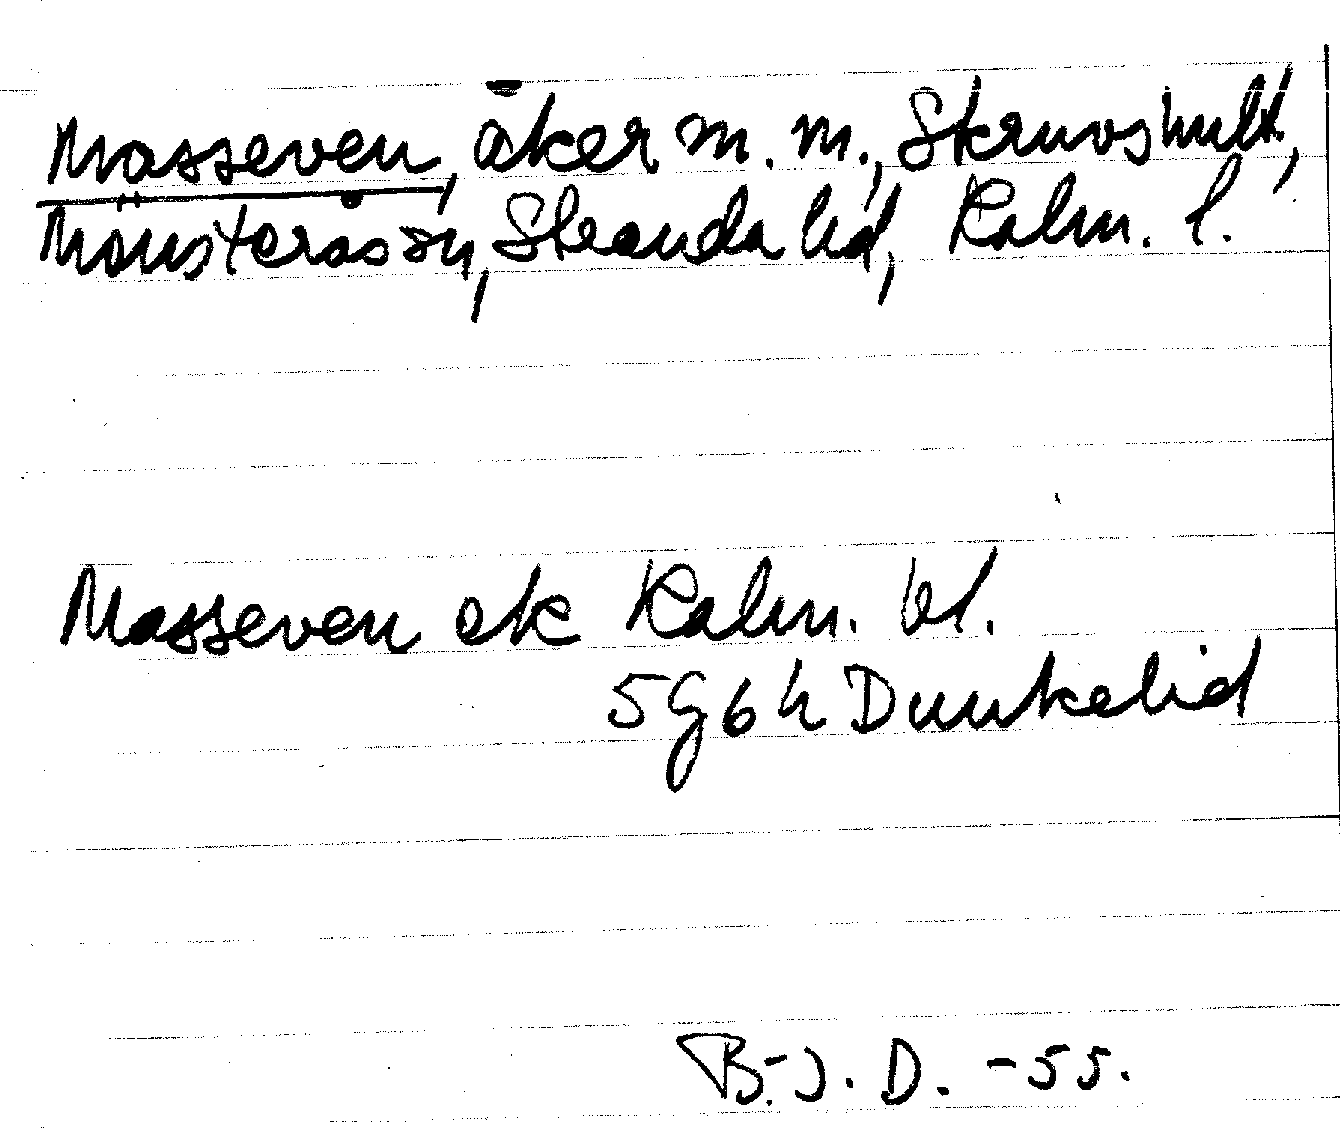 Masseven, åker m.m., Skruvshult,
Mönsterås sn, Stranda hd, Kalm. l.
Masseven ek Kalm. bl.
5G6h Dunkelid
B-J. D. -55.